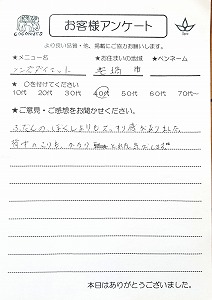 お客様アンケート
より良い品質・他、掲載にご協力お願いします。
★メニュー名 ★お住まいの地域 ★ペンネーム
市
★ ○を付けてください
10代 20代 30代 40代 50代 60代 70代～
★ご意見・ご感想をお聞かせください。
ふだんの ほぐしよりも スッキリ感がありました
背中のこりも、かなり とれた気がします
本日はありがとうございました。